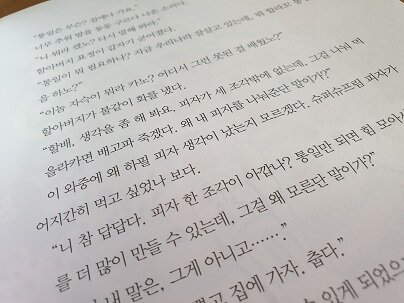 "통일은 무슨? 집에나 가요."
너무 추워 발을 동동 구르다 나온 소리다.
"니 뭐라 캤노? 다시 말해 봐라."
할아버지 표정이 갑자기 굳어졌다.
"통일이 뭐 필요하나? 지금 우리나라 잘살고 있는데, 뭐 할라꼬 통
을 하노?"
"이놈 자슥이 뭐라 카노? 어디서 그런 못된 걸 배웠노?"
할아버지가 불같이 화를 냈다.
"할배, 생각을 좀 해 봐요. 피자가 세 조각밖에 없는데, 그걸 나눠 먹
을라카면 배고파 죽겠다. 왜 내 피자를 나눠준단 말이가?"
이 와중에 왜 하필 피자 생각이 났는지 모르겠다. 슈퍼슈프림 피자가
어지간히 먹고 싶었나 보다.
"니 참 답답다. 피자 한 조각이 아깝나? 통일만 되면 힘 모아서
를 더 많이 만들 수 있는데, 그걸 왜 모른단 말이가?"
내 말은, 그게 아니고……."
고, 집에 가자. 춥다."
수 있게 되었으